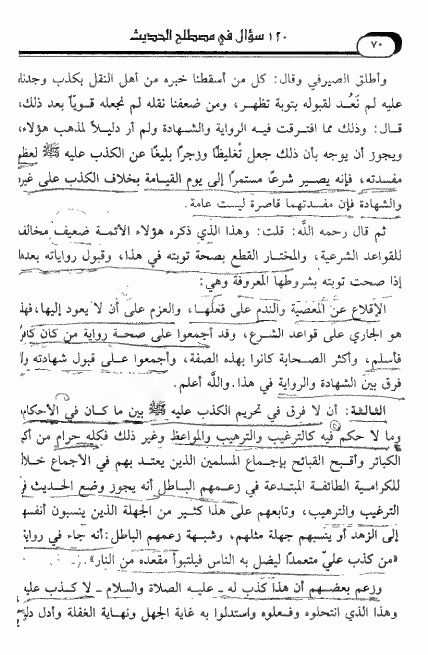 ١٢٠ سؤال في مصطلح الحديث
٧٠
وأطلق الصيرفي وقال: كل من أسقطنا خبره من أهل النقل بكذب وجدناه
عليه لم نَعُد لقبوله بتوبة تظهر، ومن ضعفنا نقله لم نجعله قويًّا بعد ذلك،
قال: وذلك مما افترقت فيه الرواية والشهادة ولم أر دليلاً لمذهب هؤلاء،
ويجوز أن يوجه بأن ذلك جعل تغليظًا وزجرًا بليغًا عن الكذب عليه ﷺ لعظم
مفسدته، فإنه يصير شرعًا مستمرًا إلى يوم القيامة بخلاف الكذب على غيره
والشهادة فإن مفسدتهما قاصرة ليست عامة.
ثم قال رحمه اللَّه: قلت: وهذا الذي ذكره هؤلاء الأئمة ضعيف مخالف
للقواعد الشرعية، والمختار القطع بصحة توبته في هذا، وقبول رواياته بعدها
إذا صحت توبته بشروطها المعروفة وهي:
الإقلاع عن المعصية والندم على فعلها، والعزم على أن لا يعود إليها، فهذا
هو الجاري على قواعد الشرع، وقد أجمعوا على صحة رواية من كان كافرًا
فأسلم، وأكثر الصحابة كانوا بهذه الصفة، وأجمعوا على قبول شهادته ولا
فرق بين الشهادة والرواية في هذا. واللَّه أعلم.
الثالثة: أن لا فرق في تحريم الكذب عليه ﷺ بين ما كان في الأحكام
وما لا حكم فيه كالترغيب والترهيب والمواعظ وغير ذلك فكله حرام من أكبر
الكبائر وأقبح القبائح بإجماع المسلمين الذين يعتد بهم في الاجماع خلافًا
للكرامية الطائفة المبتدعة في زعمهم الباطل أنه يجوز وضع الحديث في
الترغيب والترهيب، وتابعهم على هذا كثير من الجهلة الذين ينسبون أنفسهم
إلى الزهد أو ينسبهم جهلة مثلهم، وشبهة زعمهم الباطل: أنه جاء في رواية
«من كذب عليّ متعمدًا ليضل به الناس فليتبوأ مقعده من النار».
وزعم بعضهم أن هذا كذب له ـ عليه الصلاة والسلام ـ لا كذب عليه
وهذا الذي انتحلوه وفعلوه واستدلوا به غاية الجهل ونهاية الغفلة وأدل دليل